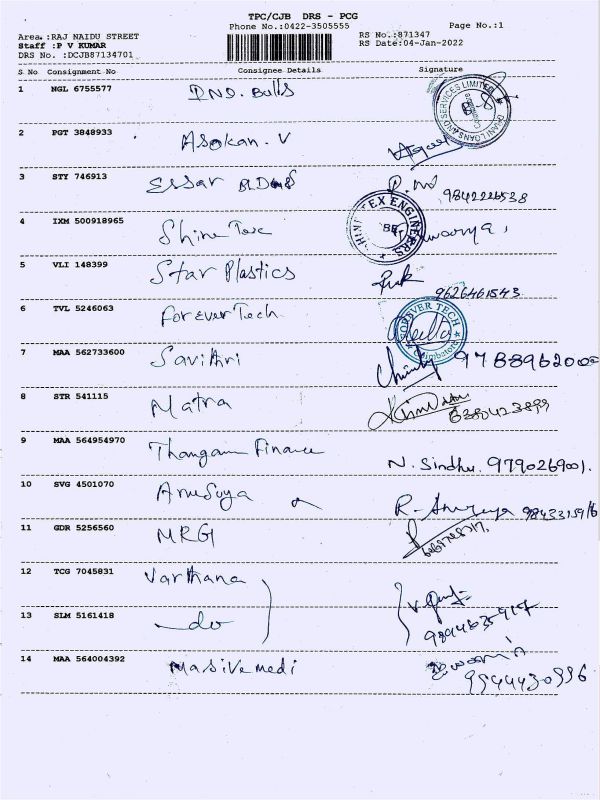 TPC/CJB DRS - PCG
Phone No.:0422-3505555 Page No.:1
Area :RAJ NAIDU STREET RS No.:871347
Staff :P V KUMAR RS Date:04-Jan-2022
DRS No. :DCJB87134701
S No Consignment No Consignee Details Signature
1 NGL 6755577 IND. Bulls
SERVICES LIMITED
DHANI LOANS AND
2 PGT 3848933 Asokan. V
3 STY 746913 Essar 9842226538
4 IXM 500918965 Shine Tex
SHINTEX ENGINEERS
5 VLI 148399 Star Plastics
9626461543
6 TVL 5246063 ForeverTech
FOREVER TECH
Coimbatore
7 MAA 562733600 Savithri
8 STR 541115 Matra
9 MAA 564954970 Thangam Finance N. Sindhu. 9790269001.
10 SVG 4501070 Anusuya
11 GDR 5256560 MRG
12 TCG 7045831 Varthana
13 SLM 5161418 do
14 MAA 564004392 Masivemedi
9944430996